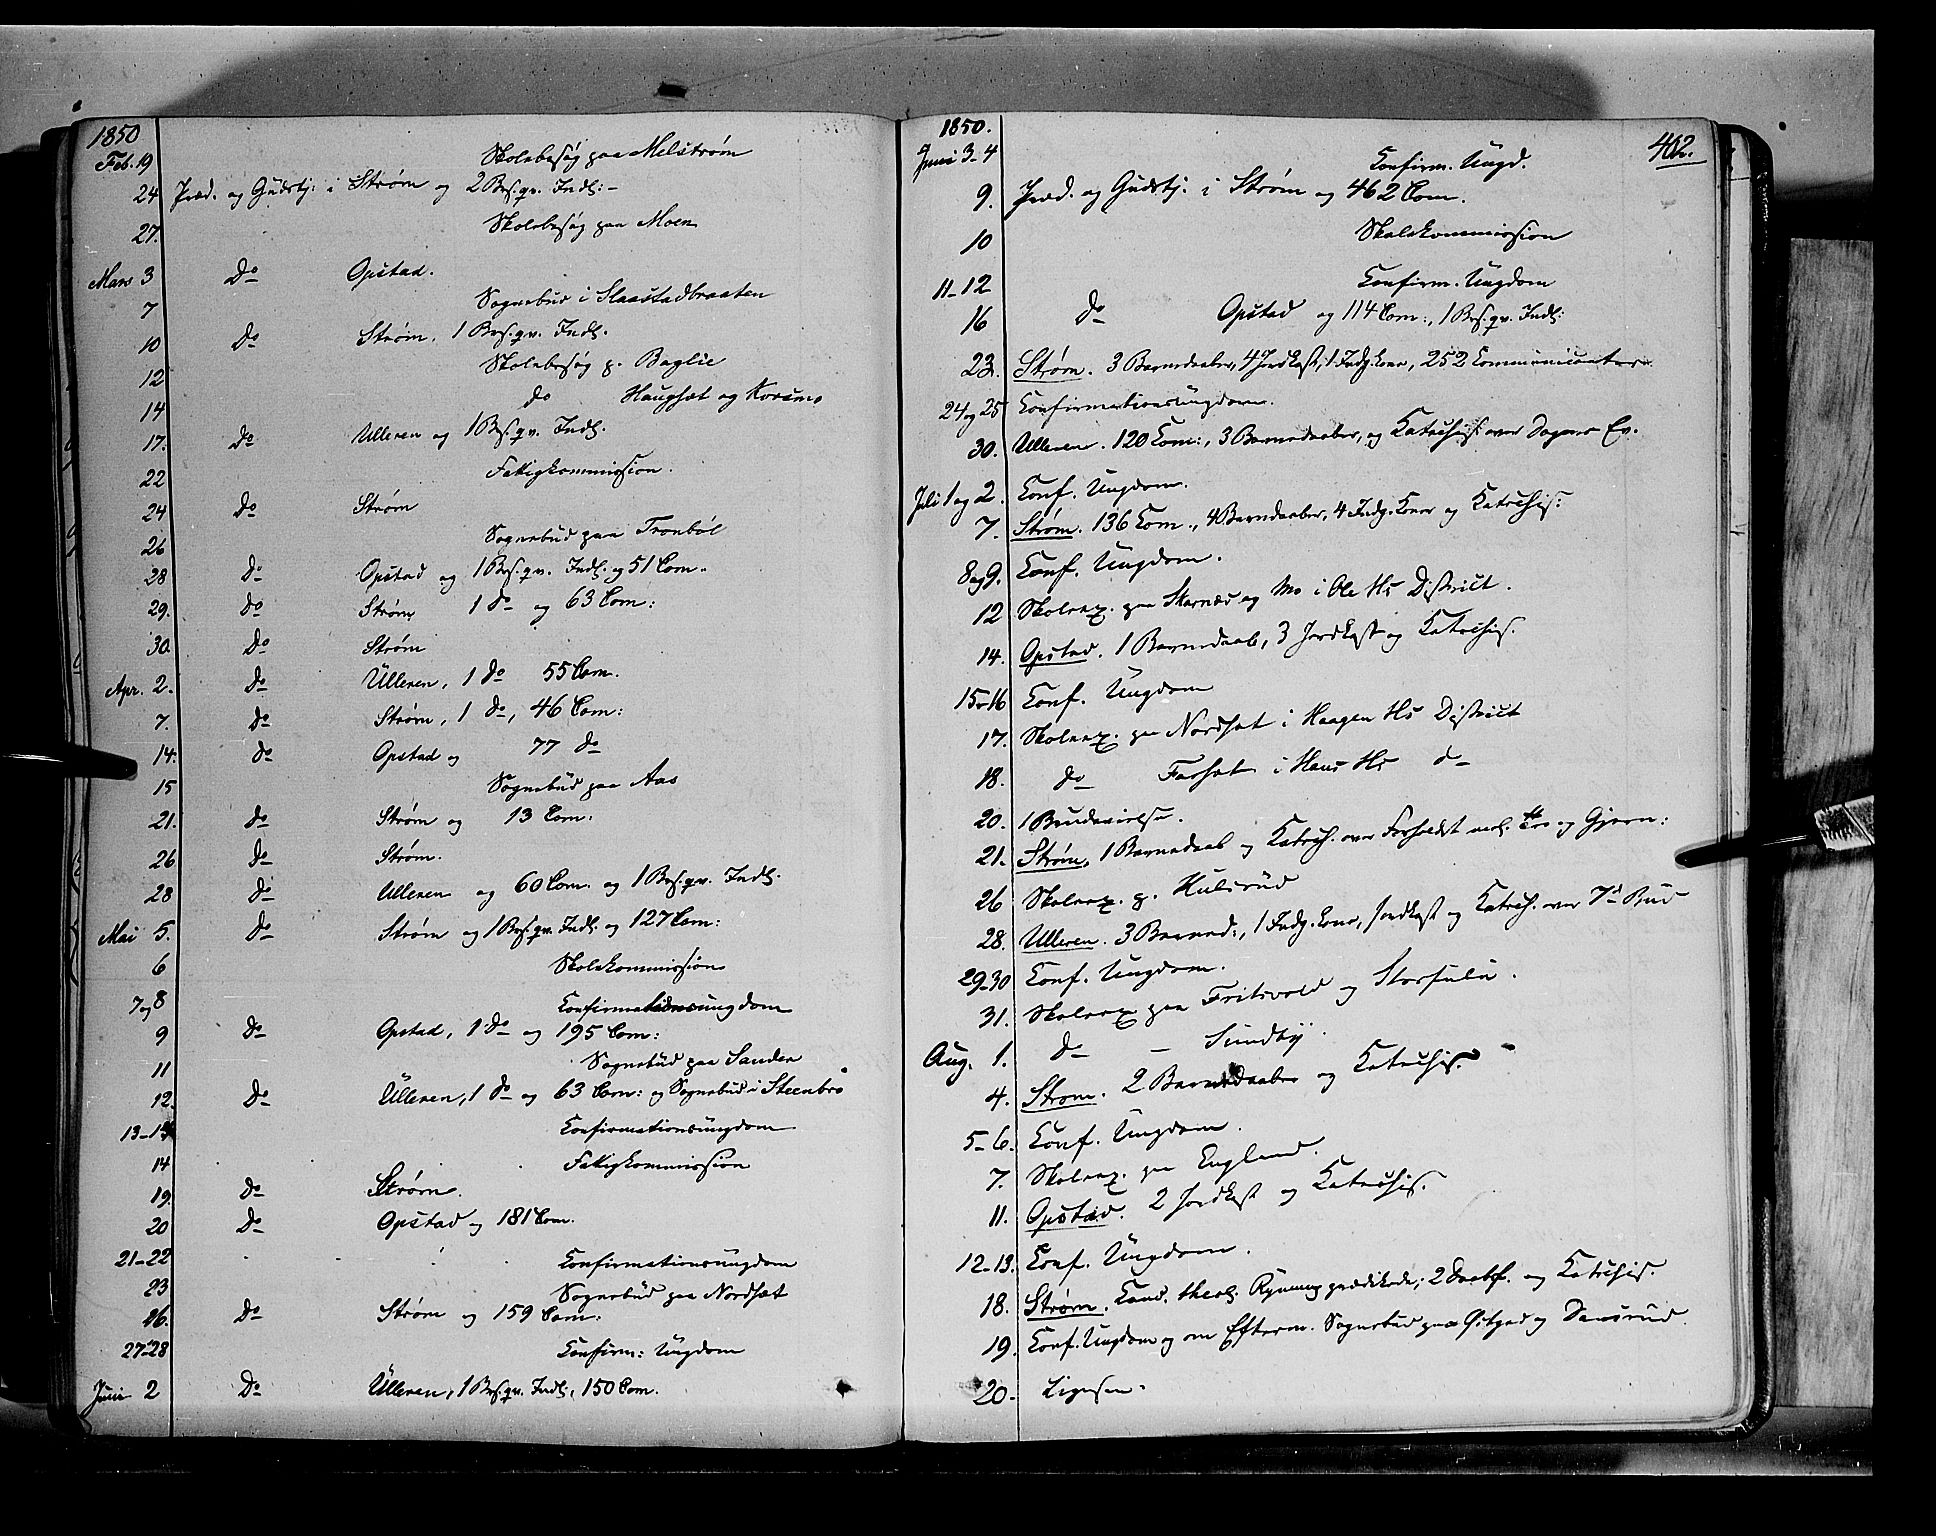 1850
Feb. 19 Skolebesøg paa Melstrøm
24 Præd. og Gudstj: i Strøm og 2 Brs.qv. Indl:
27. Skolebesøg paa Moen
Mars 3 Do Opstad.
7 Sognebud i Slaastadbraaten
10 Do Strøm, 1 Brs.qv. Indl.
12 Skolebesøg p. Baglie
14 do Haugsæt og Korsmo
17. Do Ulleren og 1 Brs.qv. Indl.
22 Fattigkommission.
24 Do Strøm
26 Sognebud paa Tronbøl
28 Do Opstad og 1 Brs.qv. Indl. og 51 Com.
29. Do Strøm 1 do og 63 Com:
30. Do Strøm
Apr. 2. Do Ulleren, 1 do 55 Com.
7. Do Strøm, 1 do, 46 Com:
14. Do Opstad og 77 do
15 Sognebud paa Aas
21. Do Strøm og 13 Com:
26 Do Strøm.
28 Do Ulleren og 60 Com. og 1 Brs.qv. Indl.
Mai 5. Do Strøm og 1 Brs.qv. Indl. og 127 Com:
6 Skolekommission
7 og 8 Confirmationsungdom
9 Do Opstad, 1 do og 195 Com:
11 Sognebud paa Sander
12. Do Ulleren, 1 do og 63 Com: og Sognebud i Steenbro
13-14 Confirmationsungdom
14 Fattigkommission
19. Do Strøm.
20 Do Opstad og 181 Com.
21-22 Confirmationsungdom
23 Sognebud paa Nordsæt
26. Do Strøm og 159 Com:
27-28 Confirm: Ungdom
Juni 2 Do Ulleren, 1 Brs.qv. Indl, 150 Com.
1850. 402.
Juni 3-4 Confirm. Ungd.
9. Præd. og Gudstj: i Strøm og 462 Com.
10 Skolekommission
11-12 Confirm. Ungdom
16 do Opstad og 114 Com:, 1 Brs.qv. Indl:
23. Strøm. 3 Barnedaaber, 4 Jordkast, 1 Indg. Kone, 252 Communicanter
24 og 25 Confirmationsungdom.
30. Ulleren. 120 Com:, 3 Barnedaaber, og Catechis. over Dagens Ev.
Juli 1 og 2. Conf. Ungdom.
7. Strøm. 136 Com., 4 Barnedaaber, 4 Indg. Koner og Catechis.
8 og 9. Conf. Ungdom.
12 Skoleex. paa Skarnæs og Mo i Ole Hs District.
14. Opstad. 1 Barnedaab, 3 Jordkast og Catechis.
15-16 Conf. Ungdom
17. Skoleex. paa Nordsæt i Haagen Hs District
18. do Farsæt i Hans Hs do
20. 1 Brudevielse.
21. Strøm, 1 Barnedaab og Catech. over Forholdet mel. Tro og Gjern:
26 Skoleex. p. Hulsrud
28. Ulleren. 3 Barned:, 1 Indg. Kone, Jordkast og Catech. over 7de Bud
29-30 Conf. Ungdom.
31. Skoleex paa Fritsvold og Storsulu.
Aug. 1. do – Sundby.
4. Strøm. 2 Barnedaaber og Catechis.
5-6. Conf. Ungdom.
7. Skoleex. paa England.
11. Opstad. 2 Jordkast og Catechis.
12-13. Conf. Ungdom.
18. Strøm. Cand. theol. Ryning prædikede; 2 Daabsf. og Catechis.
19. Conf. Ungdom og om Efterm. Sognebud paa og
20.